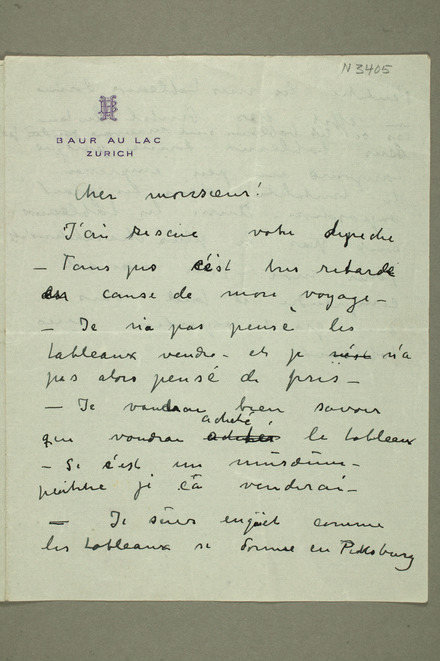 N 3405
BAUR AU LAC
ZURICH
Cher monsieur!
J'ai resçue votre depeche
– Tans pis c'est tres retardé
cause de mon voyage –
– Je n'a pas pensé les
tableaux vendre – et je n'a
pas alors pensé de priis –
– Je voudrau bien savoir
acheté
qui voudrau le tableaux
– Si c'est un musöum –
peütètre je ça venderai –
– Je süis enqüet comme
les tableaux se donne en Pittsburg